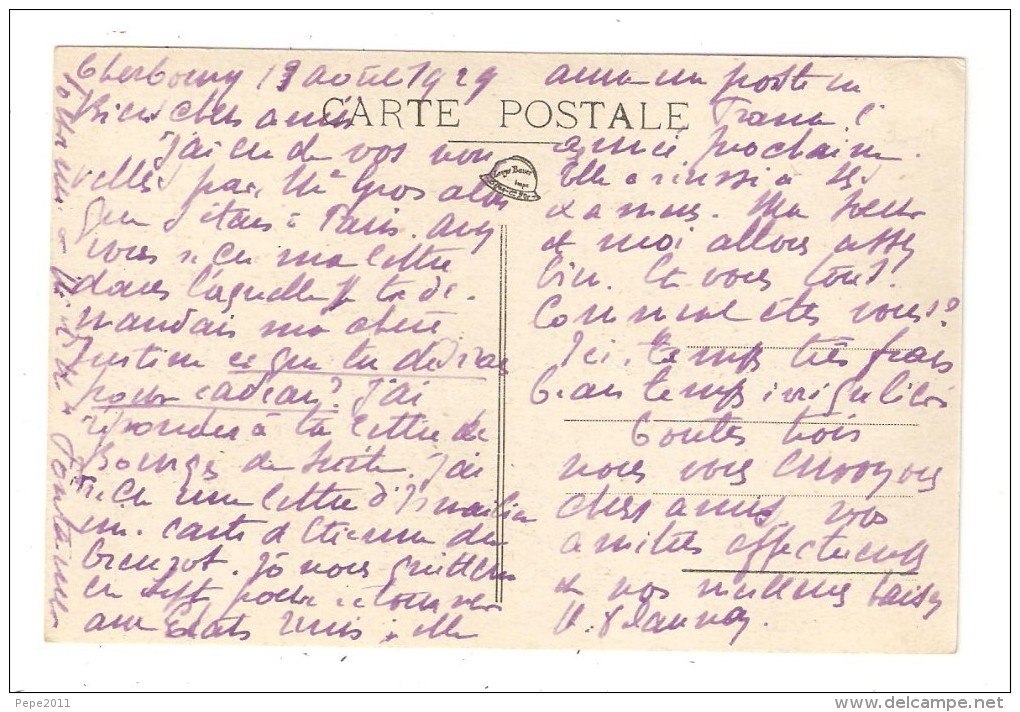 Cherbourg 13 août 1929
Bien chers amis
CARTE POSTALE
J'ai eu de vos nou
velles par Mr Gros alors
que j'étais à Paris. Avez
vous reçu ma lettre
dans laquelle je te de-
mandais ma chère
Justine ce que tu désires
pour cadeau? J'ai
répondu à ta lettre de
Bourges de suite. J'ai
reçu une lettre d'Ismailia
une carte d'Etienne du
Creuzot. Jô nous quittera
en Sept pour retourner
aux Etats Unis, elle
aura un poste en
France l'
année prochaine.
Elle a réussi à ses
examens. Ma soeur
et moi allons assez
bien. Et vous tous?
Comment êtes vous?
Ici, temps très frais
beau temps irrégulier
Toutes trois
nous vous envoyons
chers amis nos
amitiés affectueuses
et nos meilleurs baisers
Pepe2011
delcampe.net